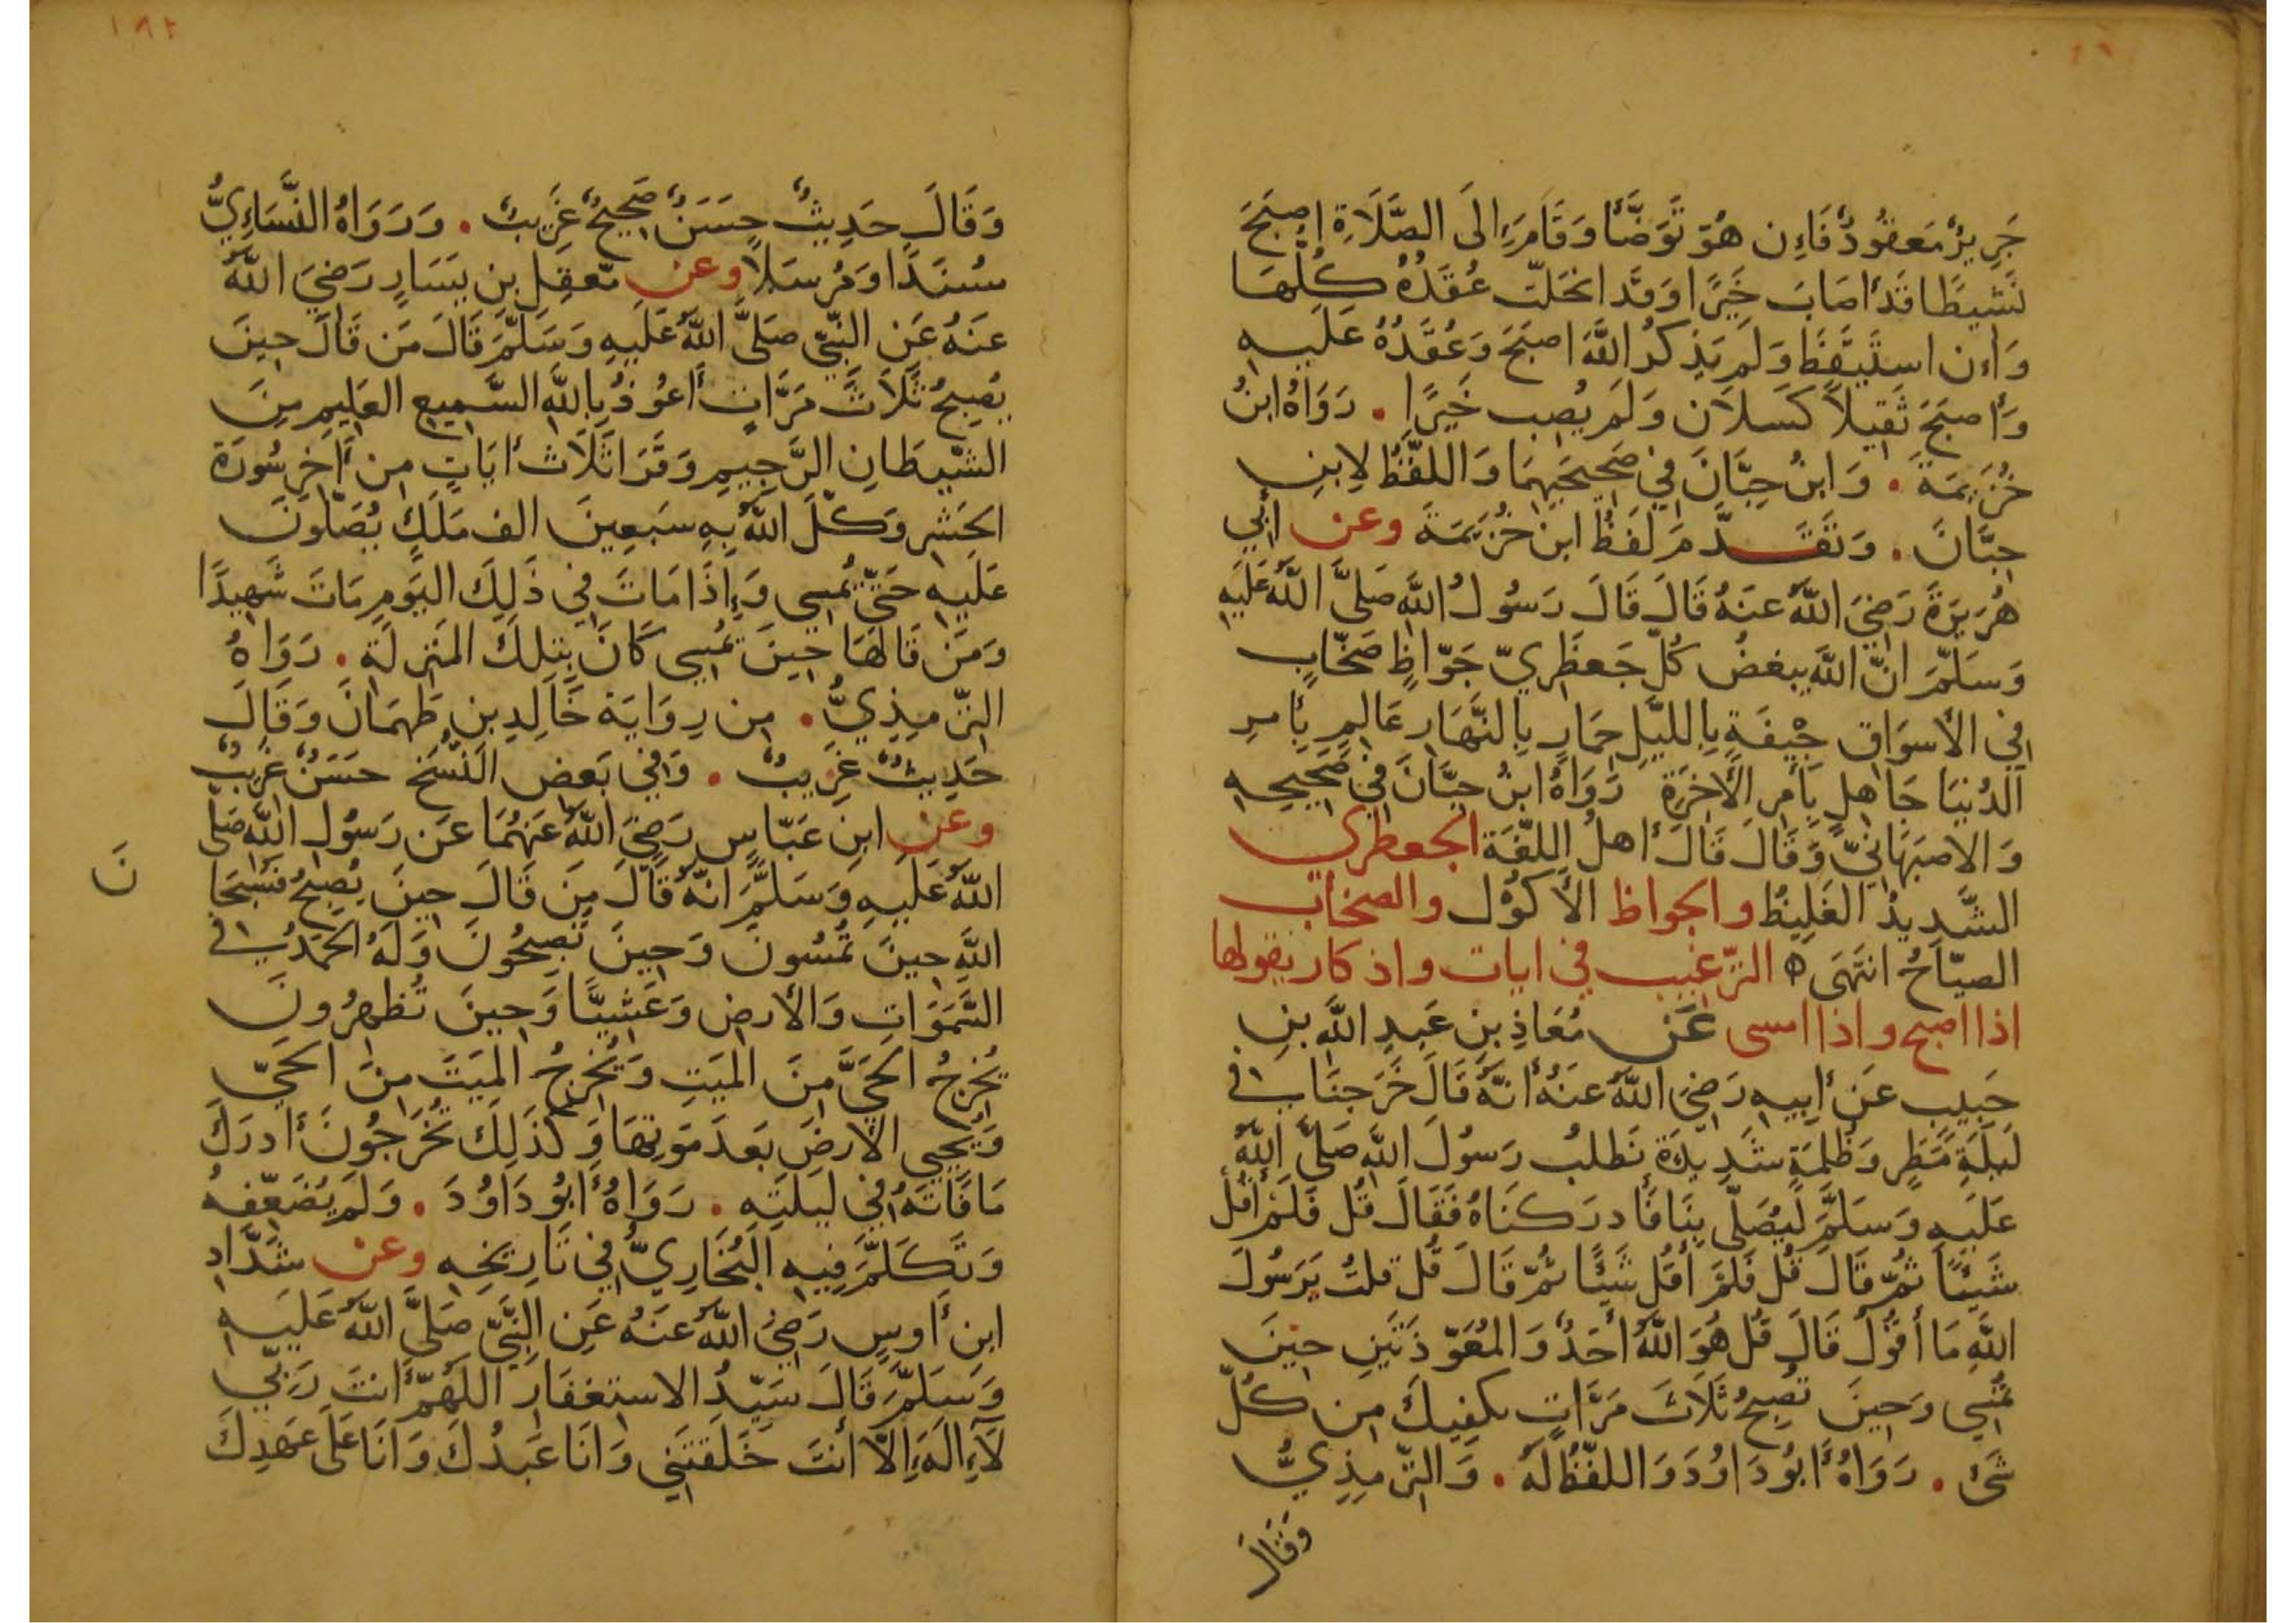 جَرِيرٌ مَعقُودٌ فَإِن هُوَ تَوَضَّأَ وَقَامَ إِلَى الصَّلَاةِ اصبَحَ
نَشِيطًا قَد أَصَابَ خَيرًا وَقَد انحَلّت عُقَدُهُ كُلّهَا
وَإن استَيقَظَ وَلَم يَذكُر اللَّهَ اصبَحَ وَعُقَدُهُ عَلَيهِ
وَأَصبَحَ ثَقِيلاً كَسلاَن وَلَم يُصِب خَيرًا . رَوَاهُ ابنُ
خُزَيمَةَ . وَابنُ حِبَّانَ فِي صَحِيحَيهِمَا وَاللفّظُ لِابنِ
حِبَّانَ . وَتَقَدَّمَ لَفظُ ابن خُزَيمَةَ وعن أَبِي
هُرَيرَةَ رَضِيَ اللَّهُ عنَهُ قَالَ قَالَ رَسُولُ اللَّهِ صَلَّى اللَّهُ عَلَيهِ
وَسَلّمَ انّ اللَّهَ يبغضُ كُلّ جَعظَرِيّ جَوّاظٍ صَخّابٍ
فِي الأَسوَاقِ جِيْفَةٍ بِالليَّلِ حِمَارٍ بِالنَّهَارِ عَالِمٍ بِأَمرِ
الدُنيَا جَاهلٍ بِأَمرِ الأَخرَةِ رَوَاهُ ابنُ حِبَّانَ فِي صَحِيحِهِ
وَالاصبَهَانِيّ وَقَالَ قَالَ أَهلُ اللغّةَ الجعظرى
الشَّدِيدُ الغَلِيظُ والجواظ الأَكوُل والصخاب
الصيّاحُ انتَهَى ه الترّغيب في ايات واذكار يقولها
اذا اصبح واذا امسى عَن مُعَاذِ بنِ عَبدِ اللَّهِ بنِ
حَبيبٍ عَن أَبِيهِ رَضِيَ اللَّهُ عنَهُ أَنَّهُ قَالَ خَرَجنَا فِي
لَيلَةِ مَطَرٍ وَظُلمَةٍ شَدِيدَةٍ نَطلبُ رَسُولَ اللَّهِ صَلَّى اللَّهُ
عَلَيهِ وَسَلَّمَ لِيُصَلّي بِنَا فَأَدرَكنَاهُ فَقَالَ قُل فَلَم أَقُل
شَيئًا ثُمّ قَالَ قُل فَلَم أَقُل شَيئًا ثُمّ قَالَ قُل قلتُ يَرَسُولَ
اللَّهِ مَا أَقُولُ قَالَ قُل هُوَ اللَّهُ أَحَدٌ وَالمُعَوّذَتَينِ حِينَ
تُمسِي وَحِينَ تُصبِحُ ثَلَاثَ مَرَّاتٍ يكفِيكَ مِن كُلّ
شَئ . رَوَاهُ أَبُو دَاوُدَ وَاللفّظُ لَهُ . وَالترّمِذِيُّ
وَقَالَ
وَقَالَ حَدِيثٌ حِسَنٌ صَحِيحٌ غَرِيبٌ . وَرَوَاهُ النَّسَاءِيُّ
سُنَدًا وَمُرسَلًا وعن مَعقِلِ بنِ يَسَارٍ رَضِيَ اللَّهُ
عنَهُ عَنِ النَّبِيّ صَلَّى اللَّهُ عَلَيهِ وَسَلَّمَ قَالَ مَن قَالَ حِينَ
يُصبِحُ ثَلَاثَ مَرَّاتٍ أَعُوذُ بِاللَّهِ السَّمِيعِ العَلِيمِ مِنَ
الشّيطَانِ الرَّجِيمِ وَقَرَا ثَلَاث أَيَاتٍ مِن أَخِرِ سُورَةِ
الحَشرِ وَكلَّ اللَّهُ بِهِ سَبعِينَ الف مَلَكٍ يُصَلّونَ
عَلَيهِ حَتّى يُمسِي وَإِذَا مَاتَ فِي ذَلِكَ اليَومِ مَاتَ شَهِيدًا
وَمَن قَالهَا حِينَ يُمسِي كَانَ بِتِلكَ المَنزِلَةِ . رَوَاهُ
الترّمِذِيُّ . مِن رِوَايَة خَالِدِ بنِ طَهمَانَ وَقَالَ
حَدِيثٌ غَرِيبٌ . وَفِي بَعض النُّسَخِ حسَنٌ غَرِيبٌ
وعن ابنِ عَبّاسٍ رَضِيَ اللَّهُ عَنهُمَا عَن رَسُول اللَّهِ صَلّى
اللَّهُ عَلَيهِ وَسَلَّمَ انّهُ قَالَ مَن قَالَ حِينَ يُصبِحُ فَسُبحَا
نَ
اللَّهِ حِينَ تُمسُونَ وَحِينَ تُصبِحُونَ وَلَهُ الحَمدُ فِي
السَّمَوَاتِ وَالأَرضِ وَعَشِيًّا وَحِينَ تُظهِرُونَ
يُخرِجُ الحَيَّ مِنَ المَيتِ وَيُخرِجُ المَيتَ مِنَ الحَيّ
وَيُحيِي الأَرضَ بَعدَ مَوتِهَا وَكَذَلِكَ تُخرَجُونَ أَدرَكَ
مَا فَاتَهُ فِي لَيلَتِهِ . رَوَاهُ أَبُو دَاوُدَ . وَلَم يُضَعّفهُ
وَتَكَلَّمَ فِيهِ البُخَارِيُّ فِي تَارِيخِهِ وعن شَدَّادِ
ابنِ أَوسٍ رَضِيَ اللَّهُ عنَهُ عَنِ النَّبِيّ صَلَّى اللَّهُ عَلَيهِ
وَسَلَّمَ قَالَ سَيّدُ الاستغفَارِ اللَهُمَّ أَنتَ رَبِّي
لَاإِلَهَ إِلَّا أَنتَ خَلَقتَنِي وَانَا عَبدُكَ وَانَا عَلَى عَهدِكَ